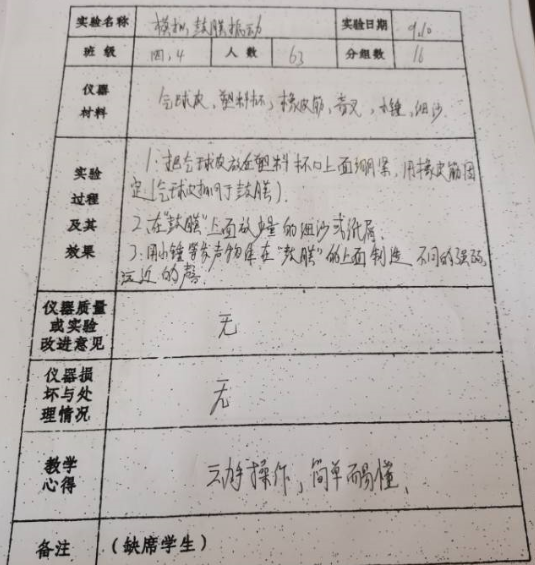 实验名称 模拟鼓膜振动 实验日期 9.10
班级 四.4 人数 63 分组数 16
仪器材料 气球皮,塑料杯,橡皮筋,音叉,小锤,细沙.
实验过程及其效果
1.把气球皮放在塑料杯口上面绷紧,用橡皮筋固
定(气球皮相当于鼓膜).
2.在"鼓膜"上面放少量的细沙或纸屑.
3.用小锤等发声物体在"鼓膜"的上面制造不同的强弱
远近的声
仪器质量或实验改进意见 无
仪器损坏与处理情况 无
教学心得 动手操作,简单而易懂.
备注 (缺席学生)